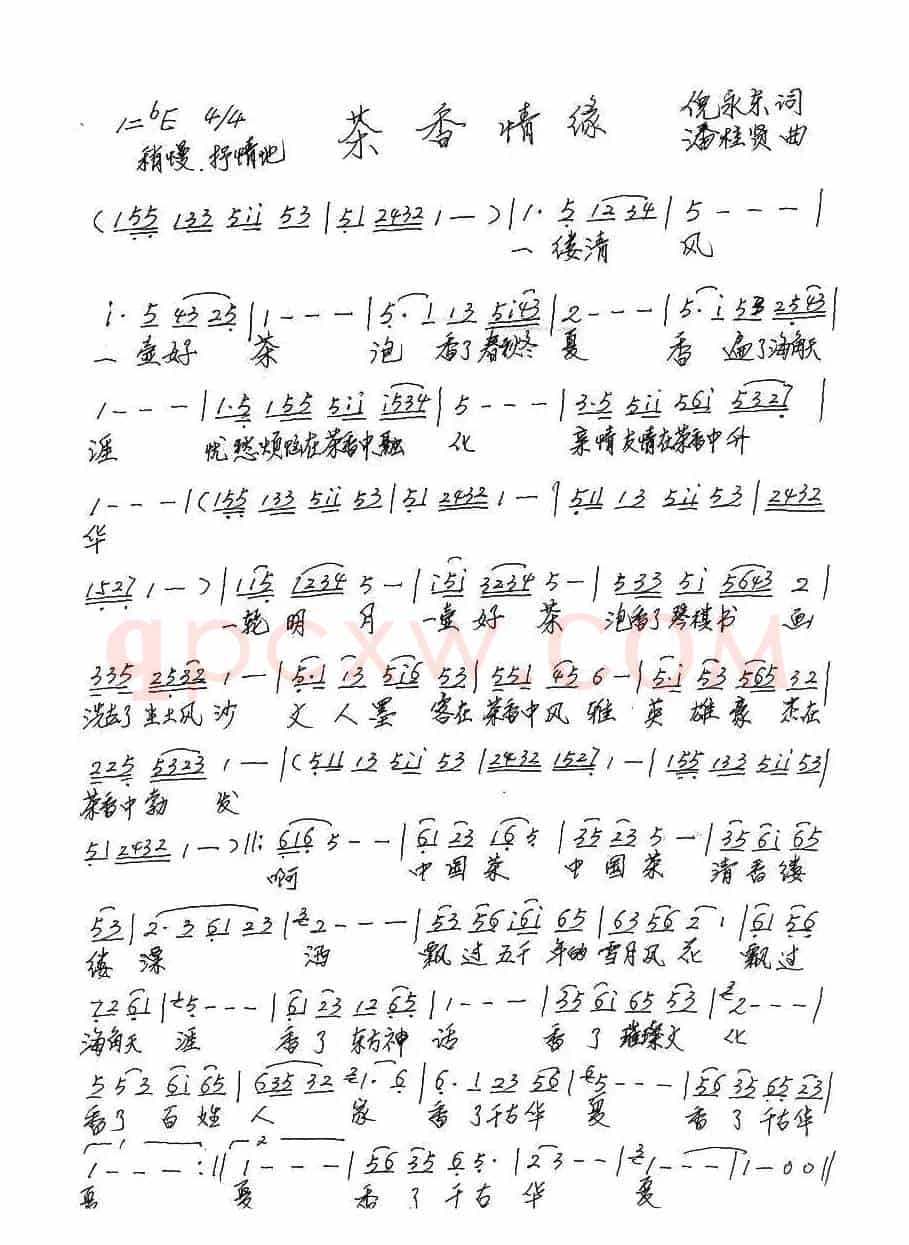 1=bE 4/4 茶香情缘 倪永东词
稍慢.抒情地 潘桂贤曲
(155 133 5ii 53 | 51 2432 1 — ) | 1· 5 12 34 | 5 - - - |
一 缕清 风
i· 5 43 25 | 1 - - - | 5· 1 13 5i43 | 2 - - - | 5· i 53 2543 |
一 壶好 茶 泡 香了春秋冬 夏 香 遍了海角天
1 - - - | 1·5 155 5ii i534 | 5 - - - | 3·5 5ii 56i 5327 |
涯 忧愁烦恼在茶香中融 化 亲情友情在茶香中升
1 - - - | (155 133 5ii 53 | 51 2432 1 — | 511 13 5ii 53 | 2432
华
1527 1 — ) | 1i5 1234 5 — | i5i 3234 5 — | 533 5i 5643 2 |
一轮 明 月 一壶 好 茶 泡香了琴棋书 画
335 2532 1 — | 5·1 13 5i6 53 | 551 45 6 — | 5·i 53 565 32 |
洗去了尘土风 沙 文 人 墨 客在 茶香中风 雅 英 雄 豪 杰在
225 5323 1 — | (511 13 5ii 53 | 2432 1527 1 — | 155 133 5ii 53 |
茶香中勃 发
51 2432 1 — ) ||: 616 5 - - | 61 23 16 5 | 35 23 5 — | 35 6i 65
啊 中 国 茶 中 国 茶 清 香 缕
53 | 2· 3 61 23 | 2 - - - | 53 56 i6i 65 | 63 56 2 · | 61 56
缕 洒 飘 过 五千 年的 雪月风 花 飘 过
72 61 | 5 - - - | 61 23 12 65 | 1 - - - | 35 6i 65 53 | 2 - - - |
海角天 涯 香 了 东方神 话 香 了 璀璨文 化
5 53 6i 65 | 635 32 1· 6 | 6· 1 23 56 | 5 - - - | 56 35 65 23 |
香了 百 姓 人 家 香 了千古华 夏 香 了 千古华
1 2
1 - - - :|| 1 - - - | 56 35 6 5· | 23 - - | 1 - - - | 1 - 0 0 ||
夏 夏 香 了 千 古 华 夏
qpcxw.com